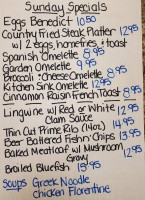 Sunday Specials
Eggs Benedict 10.50
Country Fried Steak Platter 12.95
w/ 2 eggs, homefries & toast
Spanish Omelette 8.95
Garden Omelette 9.95
Broccoli & Cheese Omelette 8.95
Kitchen Sink Omelette 12.95
Cinnamon Raisin French Toast 8.95
Linguine w/ Red or White 12.95
Clam Sauce
Thin Cut Prime Rib (14oz) 14.95
Beer Battered Fish n Chips 13.95
Baked Meatloaf w/ Mushroom 12.95
Gravy
Broiled Bluefish 15.95
Soups Greek Noodle
Chicken Florentine